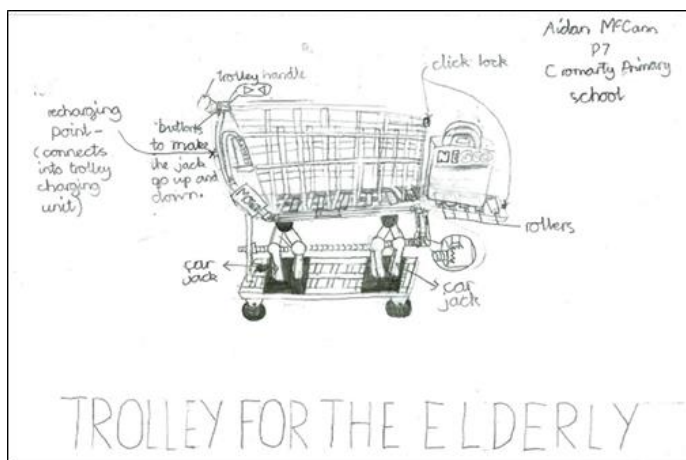 Aidan McCann
P7
Cromarty Primary
school
trolley handle
click lock
recharging
point-
(connects
into trolley
charging
unit)
"buttons
to make
the jack
go up and
down.
MOTOR
rollers
car
jack
car
jack
TROLLEY FOR THE ELDERLY